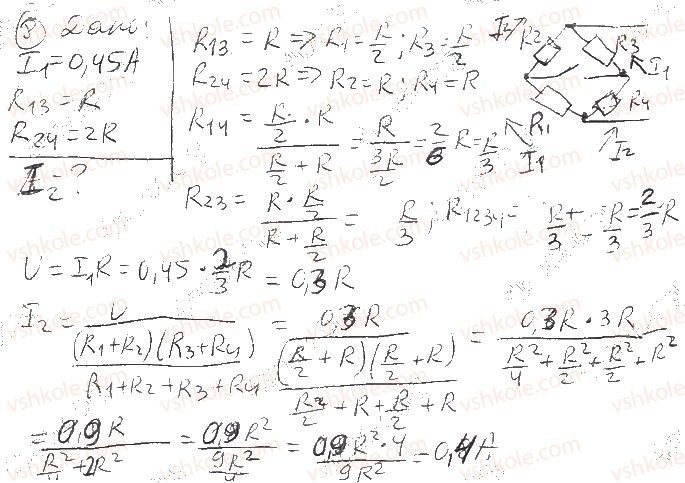 5 Дано:
I₁=0,45A
R₁₃=R
R₂₄=2R
I₂-?
R₁₃=R=>R₁=R/2; R₃=R/2
R₂₄=2R=>R₂=R; R₄=R
R₁₄=(R/2·R)/(R/2+R)=R/(3R/2)=2/6R=R/3
R₂₃=(R·R/2)/(R+R/2)=R/3; R₁₂₃₄=R/3+R/3=2/3R
I₂ R₂ R₃ I₁ R₄ R₁ I₁ I₂
U=I₁R=0,45·2/3R=0,3R
I₂=U/((R₁+R₂)(R₃+R₄)/(R₁+R₂+R₃+R₄))=0,3R/((R/2+R)(R/2+R)/(R/2+R+R/2+R))=0,3R·3R/(R²/4+R²/2+R²/2+R²)
=0,9R/(R²/4+2R²)=0,9R²/(9R²/4)=0,9R²·4/9R²=0,4A
vshkole.com